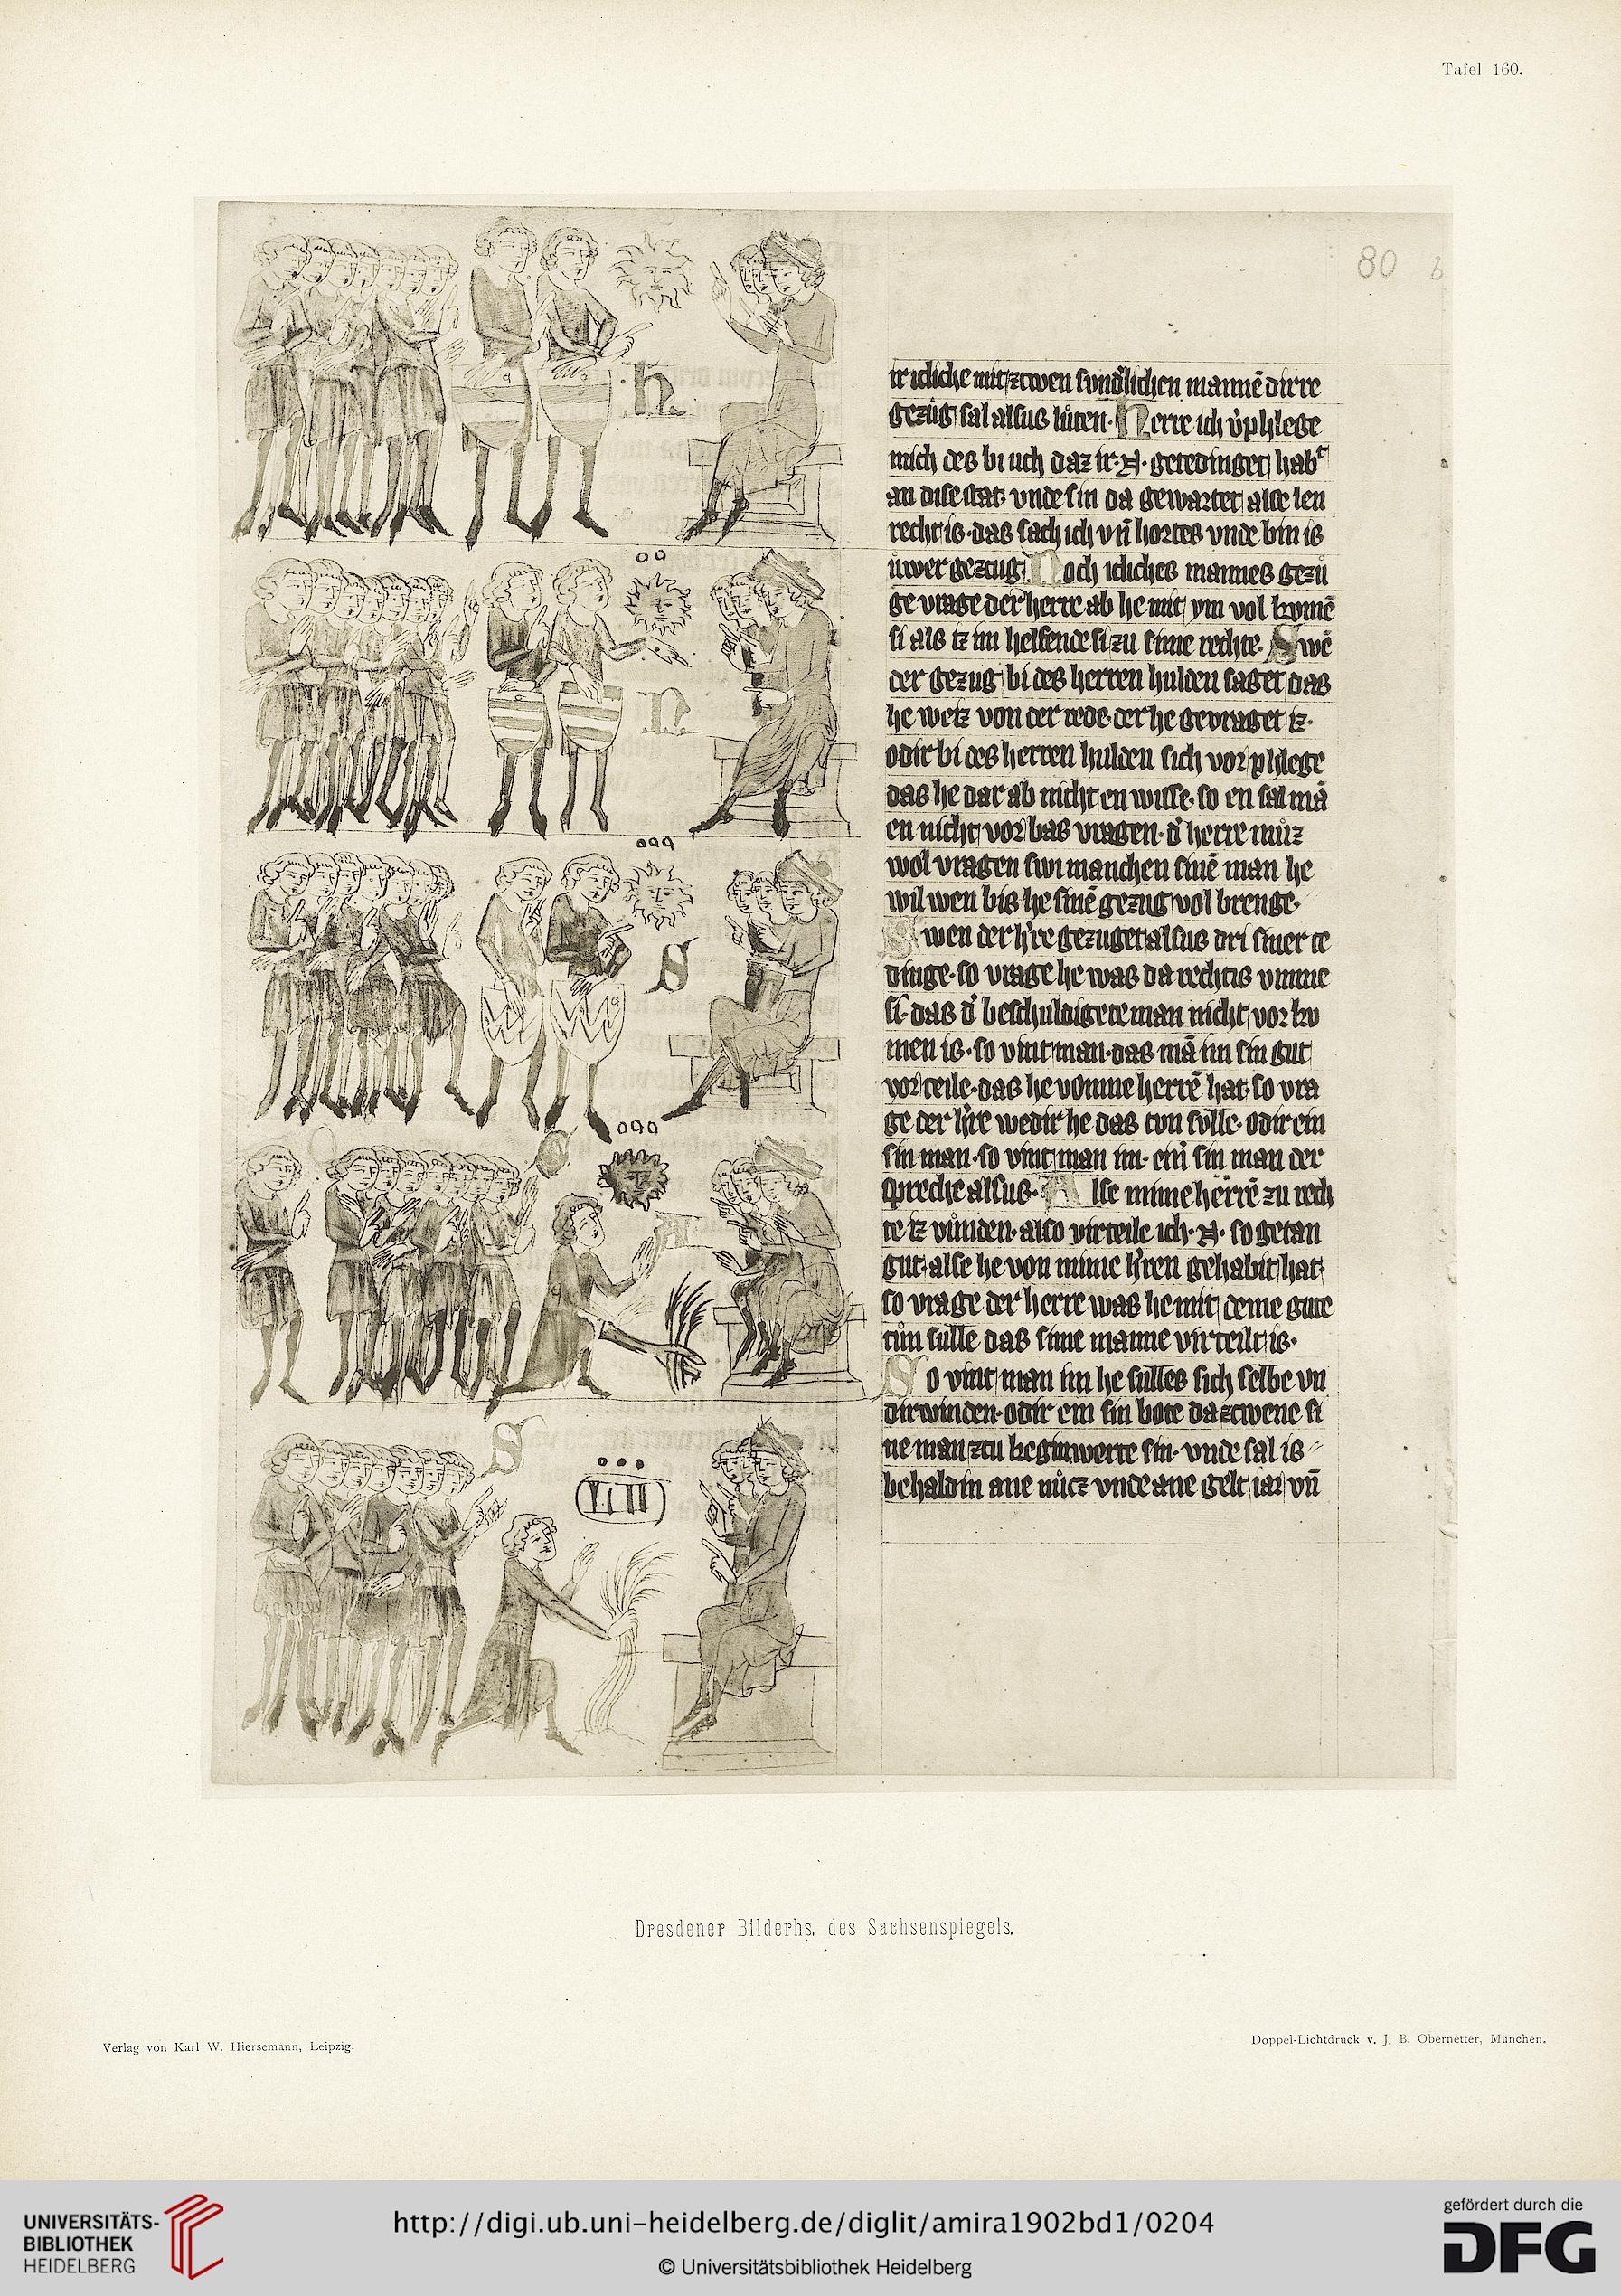 Tafel 160.
80 b
ir icliche mit zcwen sund'lichen mannē dirre
gezüg sal alsus lůten. Herre ich v'phlege
mich des bi uch daz ir · A · getedinget hab't
an dise stat vnde sin da gewartet alse len
recht is · das sach ich vn̄ hortes vnde bin is
ůwer gezcug. Noch icliches mannes gezů
ge vrage der herre ab he mit ym vol komē
si als iz im helfende si zu sime rechte. Swē
der gezug bi des herren hulden saget das
he weiz von der rede der he gevraget iz·
odir bi des herren hulden sich vorphlege
das he dar ab nicht en wisse · so en sal mā
en nicht vor bas vragen · d' herre můz
wol vragen swi manchen sinē man he
wil wen bis he sinē gezug vol brenge·
Swen der h're gezuget alsus dri siner te
dinge · so vrage he was da rechtis vmme
si · das d' beschuldigete man nicht vor ku
men is · so vint man · das mā im sin gut
vor teile · das he vomme herrē hat · so vra
ge der h're wedir he das tun sulle · odir ein
sin man · so vint man im · ein sin man der
spreche alsus · Alse mime herrē zu rech
te iz vůnden · also virteile ich · A · so getan
gut · alse he von mime h'ren gehabit hat·
so vrage der herre was he mit deme gute
tůn sulle das sime manne virteilt is·
So vint man im he sulles sich selbe vn
dirwinden · odir ein sin bote da zcwene si
ne man zcu keginwerte sin · vnde sal is
behaldin ane nůcz vnde ane gelt iar vn̄
h
n
S
A
S
LII
Dresdener Bilderhs. des Sachsenspiegels.
Verlag von Karl W. Hiersemann, Leipzig.
Doppel-Lichtdruck v. J. B. Obernetter, München.
UNIVERSITÄTS-
BIBLIOTHEK
HEIDELBERG
http://digi.ub.uni-heidelberg.de/diglit/amira1902bd1/0204
© Universitätsbibliothek Heidelberg
gefördert durch die
DFG